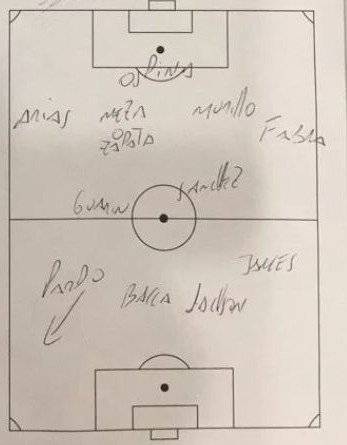 OSPINA
ARIAS MEZA MURILLO FABRA
O
ZAPATA
SANCHEZ
GUARIN
JAMES
PARDO BACCA JACKSON